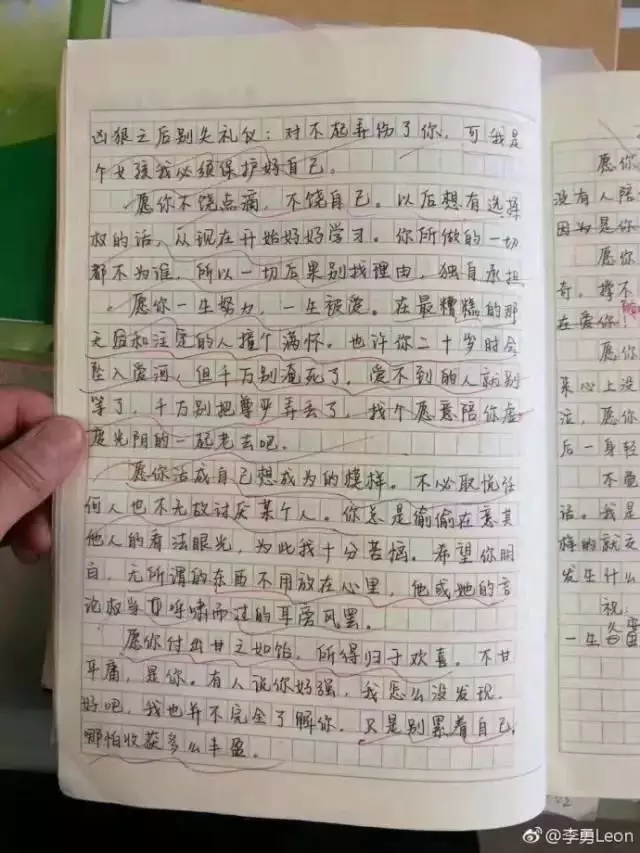 凶狠之后别失礼仪：对不起弄伤了你，可我是
个女孩我必须保护好自己。
愿你不饶点滴，不饶自己。以后想有选择
权的话，从现在开始好好学习。你所做的一切
都不为谁，所以一切后果别找理由，独自承担
愿你一生努力，一生被爱。在最糟糕的那
天因和注定的人撞个满怀。也许你二十岁时会
坠入爱河，但千万别淹死了，爱不到的人就别
等了，千万别把尊严弄丢了，找个愿意陪你虚
度光阴的一起老去吧。
愿你活成自己想成为的模样。不必取悦任
何人也不无故讨厌某个人。你总是偷偷在意其
他人的看法眼光，为此我十分苦恼。希望你明
白，无所谓的东西不用放在心里，他或她的言
论权当呼啸而过的耳旁风罢。
愿你付出甘之如饴，所得归于欢喜。不甘
平庸，是你。有人说你好强，我怎么没发现，
好吧，我也并不完全了解你，只是别累着自己，
哪怕收获多么丰盈。
愿你
没有人陪
因为是你
愿你
奇，撑不
在爱你！
愿你
来心上没
泣，愿你
后一身轻
不要
话。我是
样的就交
发生什么
祝：
一生
@李勇Leon